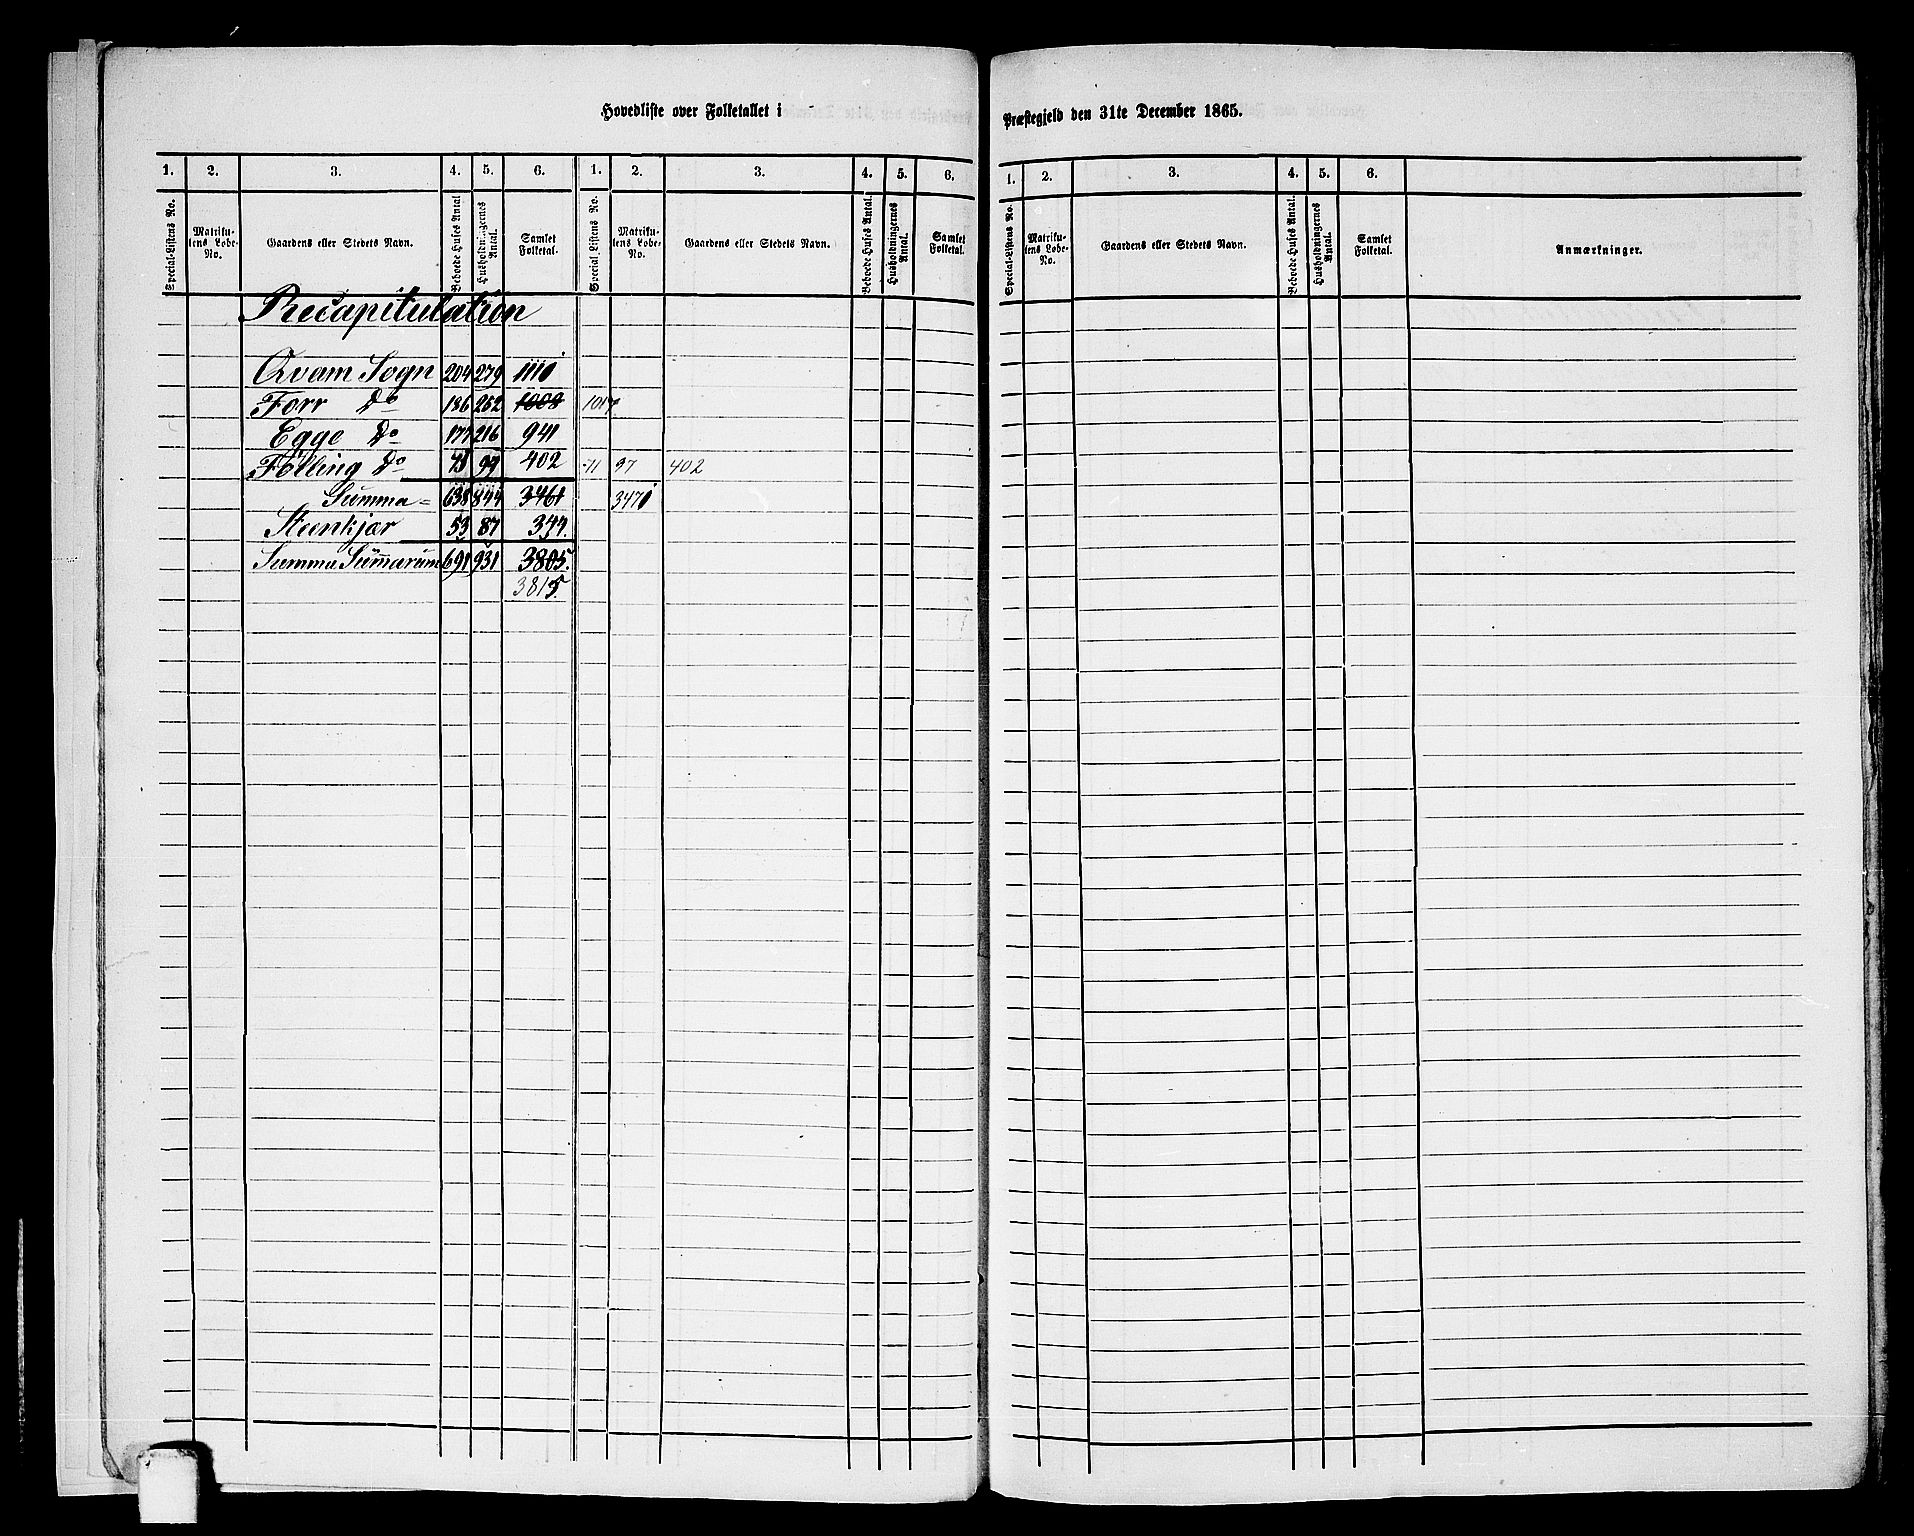 Hovedliste over Folketallet i
Præstegjeld den 31te December 1865.
1. 2. 3. 4. 5. 6. 1. 2. 3. 4. 5. 6.
1. 2. 3. 4. 5. 6.
Special-Listens No. Matrikulens Løbe-No. Gaardens eller Stedets Navn. Beboede Huses Antal Husholdningernes Antal. Samlet Folketal. Special-Listens No. Matrikulens Løbe-No. Gaardens eller Stedets Navn. Beboede Huses Antal. Husholdningernes Antal. Samlet Folketal.
Special-Listens No. Matrikulens Løbe-No. Gaardens eller Stedets Navn. Beboede Huses Antal. Husholdningernes Antal. Samlet Folketal. Anmærkninger.
Recapitulation
Qvam Sogn 204 279 1110
Forr Do 186 252 1008 1017
Egge Do 177 216 941
Følling Do 71 97 402 71 97 402
Summa = 638 844 3461 3470
Steenkjær 53 87 344.
Summa Summarum 691 931 3805.
3815.